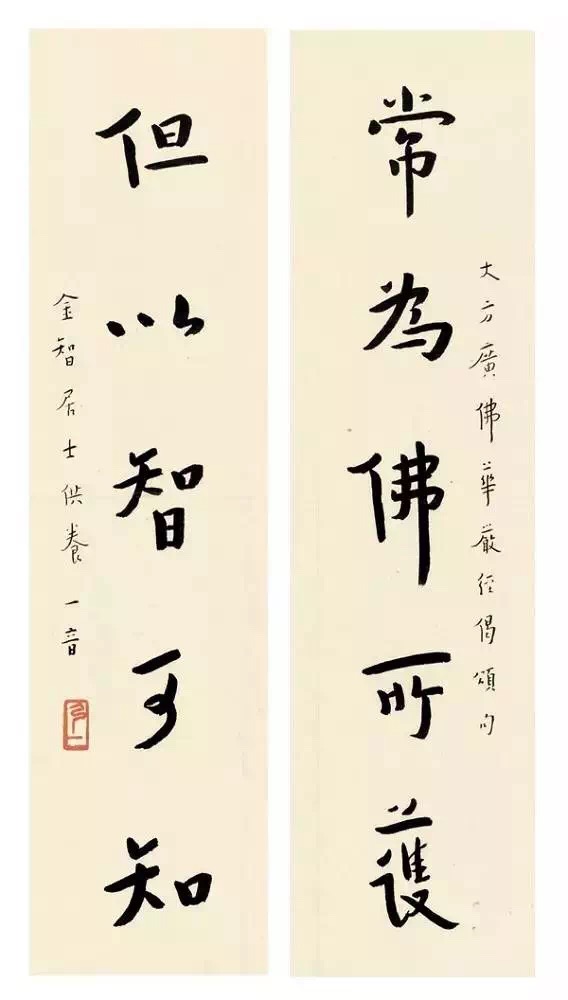 大方廣佛華嚴經偈頌句
常為佛所護
但以智可知
金智居士供養 一音
弘一